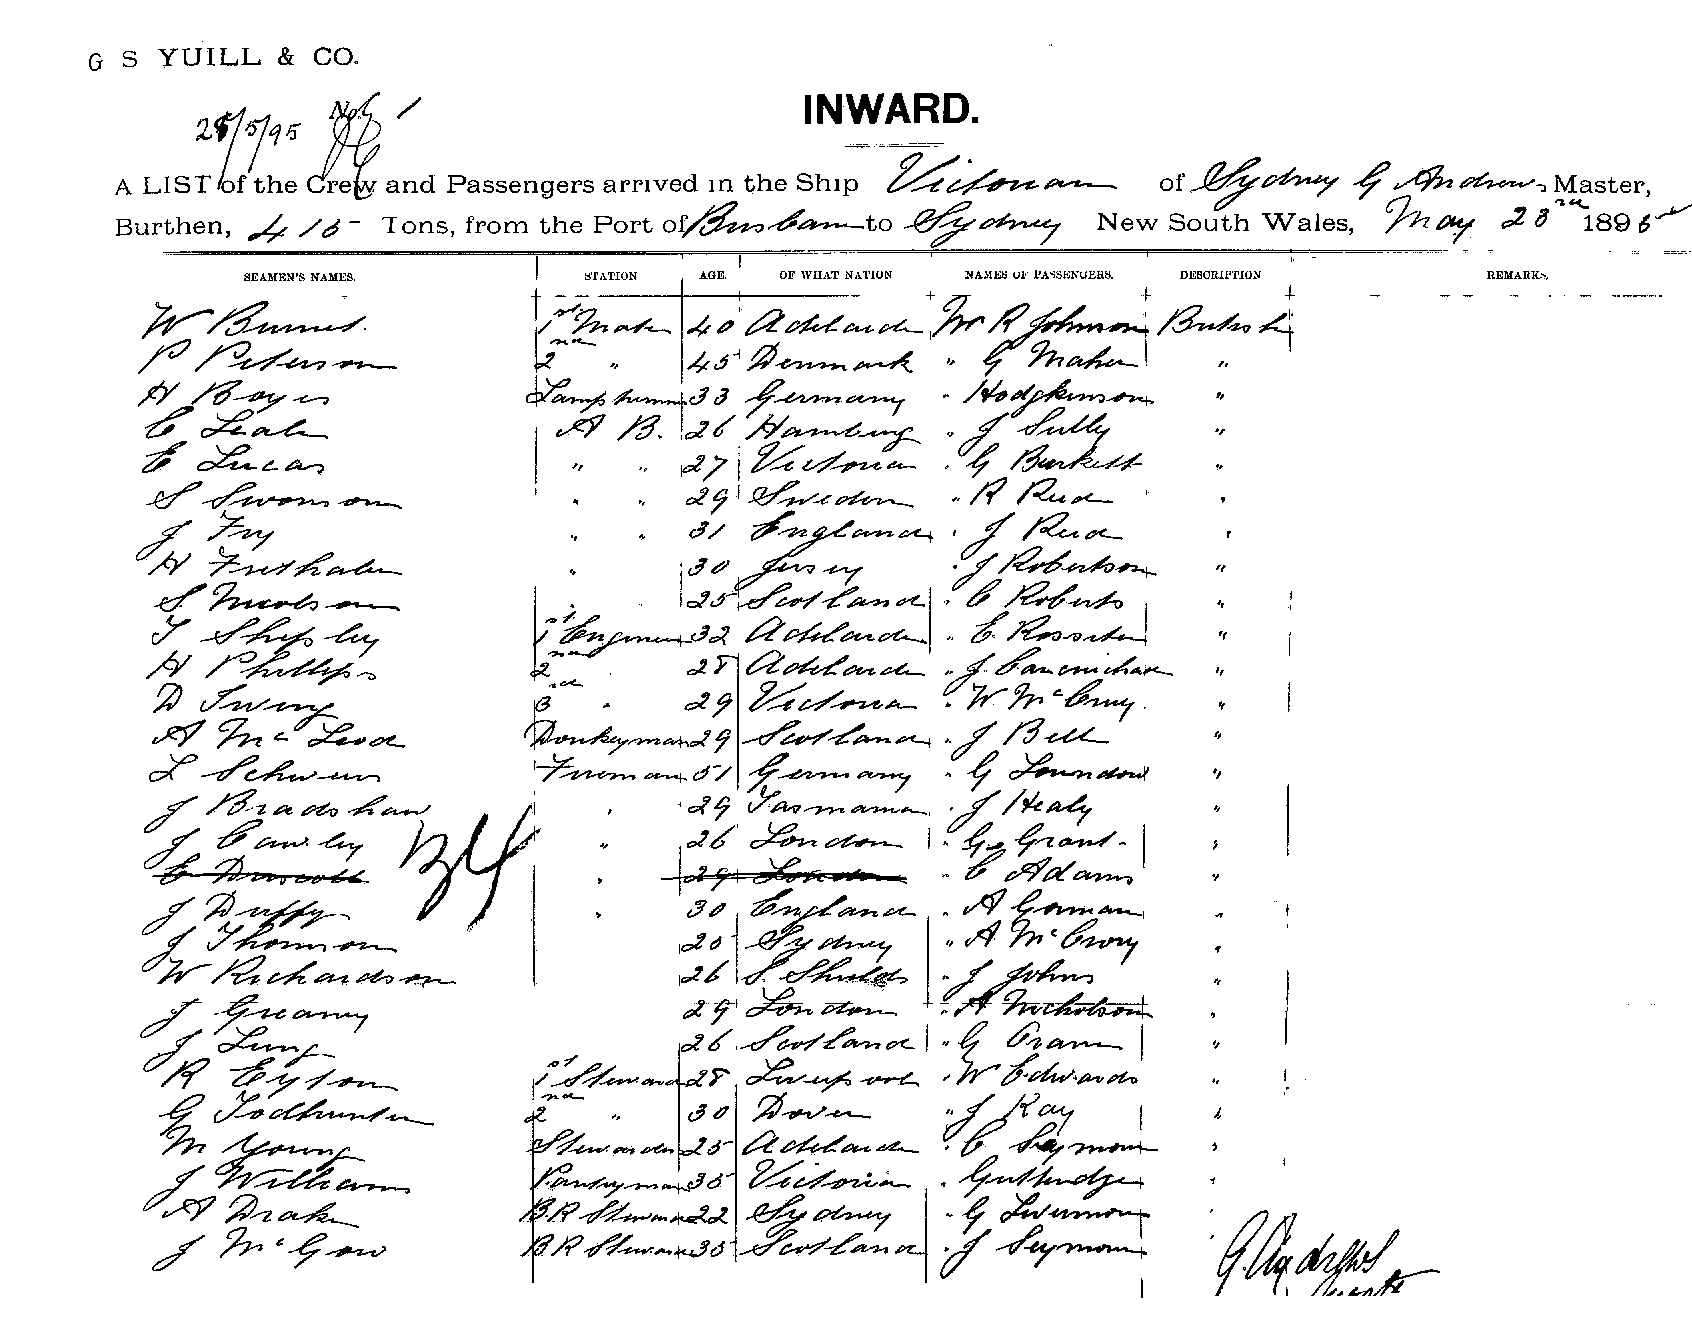 G S YUILL & CO.
INWARD.
28/5/95
A LIST of the Crew and Passengers arrived in the Ship Victorian of Sydney G Andrews Master,
Burthen, 415 Tons, from the Port of Brisbane to Sydney New South Wales, May 23rd 1895
SEAMEN'S NAMES. STATION AGE. OF WHAT NATION NAMES OF PASSENGERS. DESCRIPTION REMARKS.
W Burnet. 1st Mate 40 Adelaide Mr R Johnson British
P Peterson 2nd " 45 Denmark " G Maher "
H Boyes Lamptrimmer 33 Germany " Hodgkinson "
C A B. 26 Hamburg " J Sully "
E Lucas " " 27 Victoria " G Burkett "
S Swanson " " 29 Sweden " R Reid "
J Fry " " 31 England " J Reid "
H " 30 Jersey " J Robertson "
S Nicolson " 25 Scotland " C Roberts "
T Shepley 1st Engineer 32 Adelaide " E Rossiter "
H Phillips 2nd " 28 Adelaide " J "
D Ewing 3rd " 29 Victoria " W McCrory "
A McLeod Donkeyman 29 Scotland " J Bell "
L Fireman 51 Germany " G "
J Bradshaw " 29 Tasmania " J Healy "
J Cawley " 26 London " G Grant "
E Driscoll " 29 London " C Adams "
J Duffy " 30 England " A Gorman "
J Thomson 20 Sydney " A McCrory "
W Richardson 26 S. Shields " J Johns "
J Greany 29 London " A Nicholson "
J Lung 26 Scotland " G Oram "
R Eyton 1st Steward 28 Liverpool " W Edwards "
G Todhunter 2nd " 30 Dover " J Kay "
M Young Stewardess 25 Adelaide " C Seymour "
J Williams Pantryman 35 Victoria " Guttridge "
A Drake B.R Steward 22 Sydney " G "
J McGow B R Steward 35 Scotland " J Seymour
G. Andrews